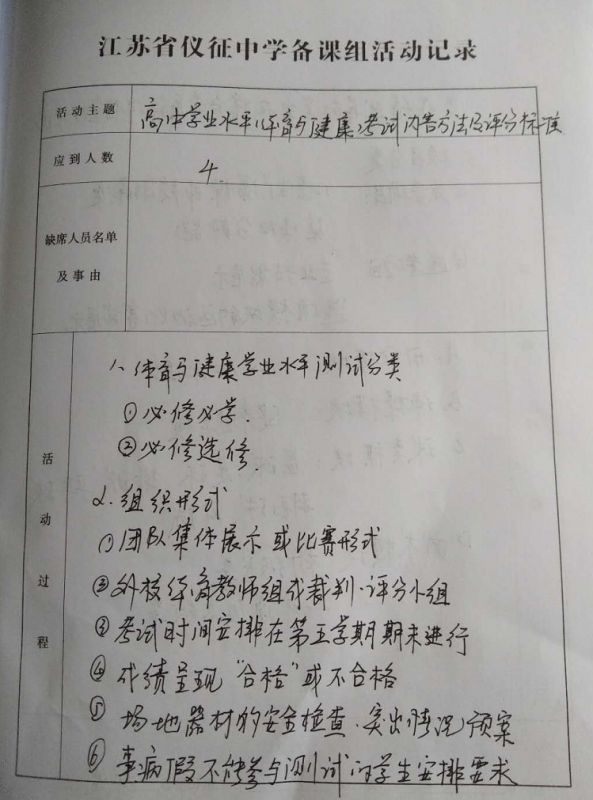 江苏省仪征中学备课组活动记录
活动主题 高中学业水平(体育与健康)考试内容方法及评分标准
应到人数 4.
缺席人员名单
及事由
活动过程
1、体育与健康学业水平测试分类
①必修必学.
②必修选修.
2.组织形式
①团队集体展示或比赛形式
②外校体育教师组成裁判·评分小组
③考试时间安排在第五学期期末进行
④成绩呈现"合格"或不合格
⑤场地器材的安全检查、突出情况预案
⑥事病假不能参与测试的学生安排要求